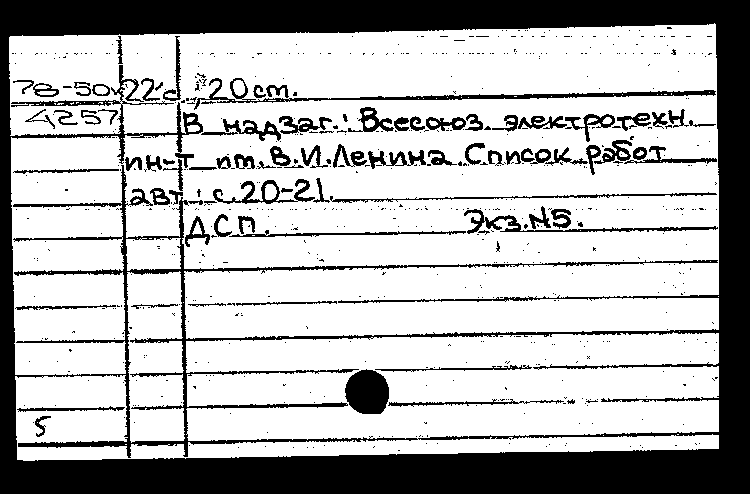 78-50к 22с ; 20 ст.
4257 В надзаг.: Всесоюз. электротехн.
ин-т им. В.И.Ленина. Список работ
авт.: с.20-21.
ДСП. Экз.№5.
5